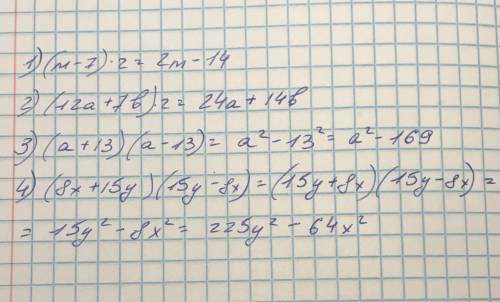 1) (m-7)·2 = 2m-14
2) (12a+7b)·2 = 24a+14b
3) (a+13)(a-13) = a²-13² = a²-169
4) (8x+15y)(15y-8x) = (15y+8x)(15y-8x) =
= 15y²-8x² = 225y²-64x²